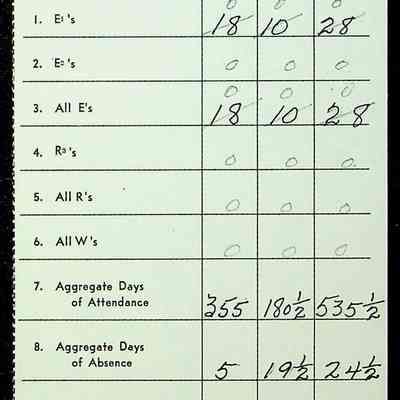 0 0 0
1. E¹'s 18 10 28
2. E²'s 0 0 0
0 0 0
3. All E's 18 10 28
4. R³'s 0 0 0
5. All R's 0 0 0
6. All W's 0 0 0
7. Aggregate Days
of Attendance 355 180½ 535½
8. Aggregate Days
of Absence 5 19½ 24½